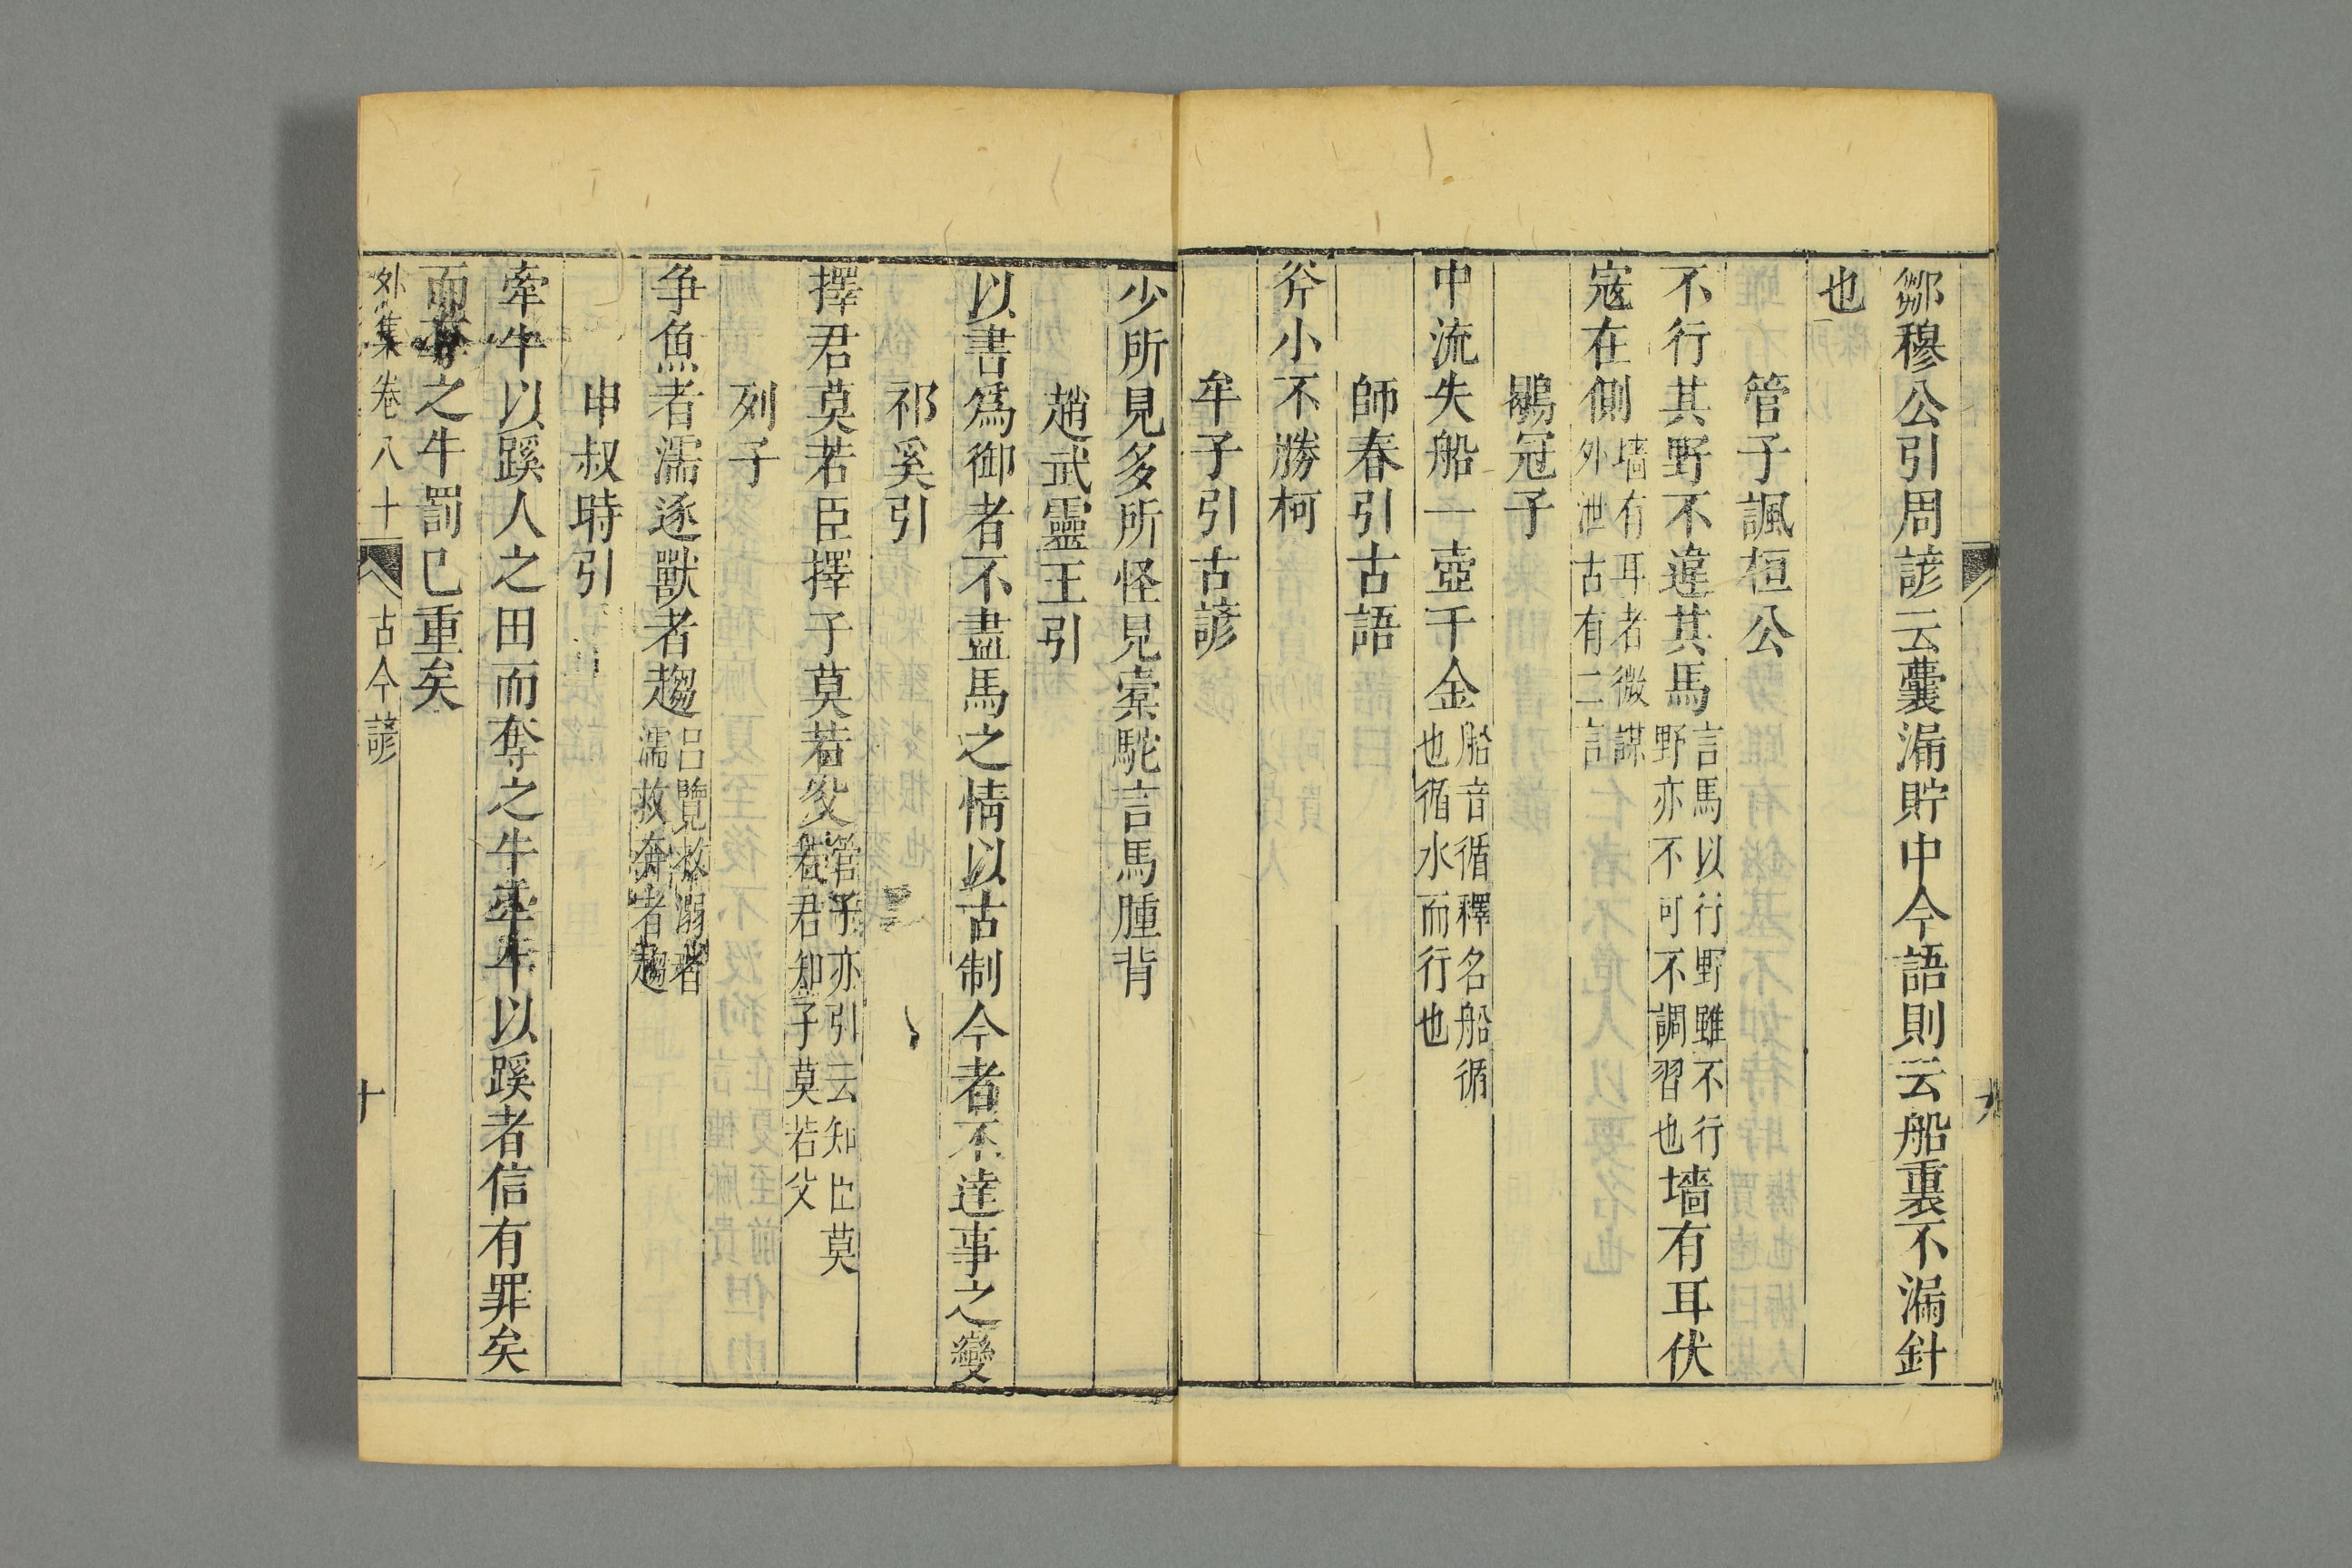 鄒穆公引周諺云囊漏貯中今語則云船裏不漏針
也
管子諷桓公
不行其野不違其馬言馬以行野雖不行野亦不可不調習也墻有耳伏
寇在側墻有耳者微謀外泄古有二言
鶡冠子
中流失船一壺千金船音循釋名船循也循水而行也
師春引古語
斧小不勝柯
牟子引古諺
少所見多所怪見槖駝言馬腫背
趙武靈王引
以書爲御者不盡馬之情以古制今者不達事之變
祁奚引
擇君莫若臣擇子莫若父管子亦引云知臣莫若君知子莫若父
列子
争魚者濡逐獸者趨呂覽救溺者濡救奔者趨
申叔時引
牽牛以蹊人之田而奪之牛牽牛以蹊者信有罪矣
而奪之牛罰已重矣
外集卷八十 古今諺 十